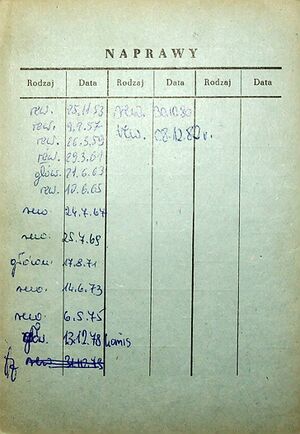 NAPRAWY
Rodzaj Data Rodzaj Data Rodzaj Data
rew. 25.11.53 rew. 30.10.80
rew. 9.2.57 rew. 08.12.82 r.
rew. 26.5.59
rew. 29.3.61
głów. 21.6.63
rew. 10.6.65
rew. 24.7.67
rew. 25.7.69
główn. 17.8.71
rew. 14.6.73
rew. 6.5.75
głów. 13.12.78
rew. 31.12.79